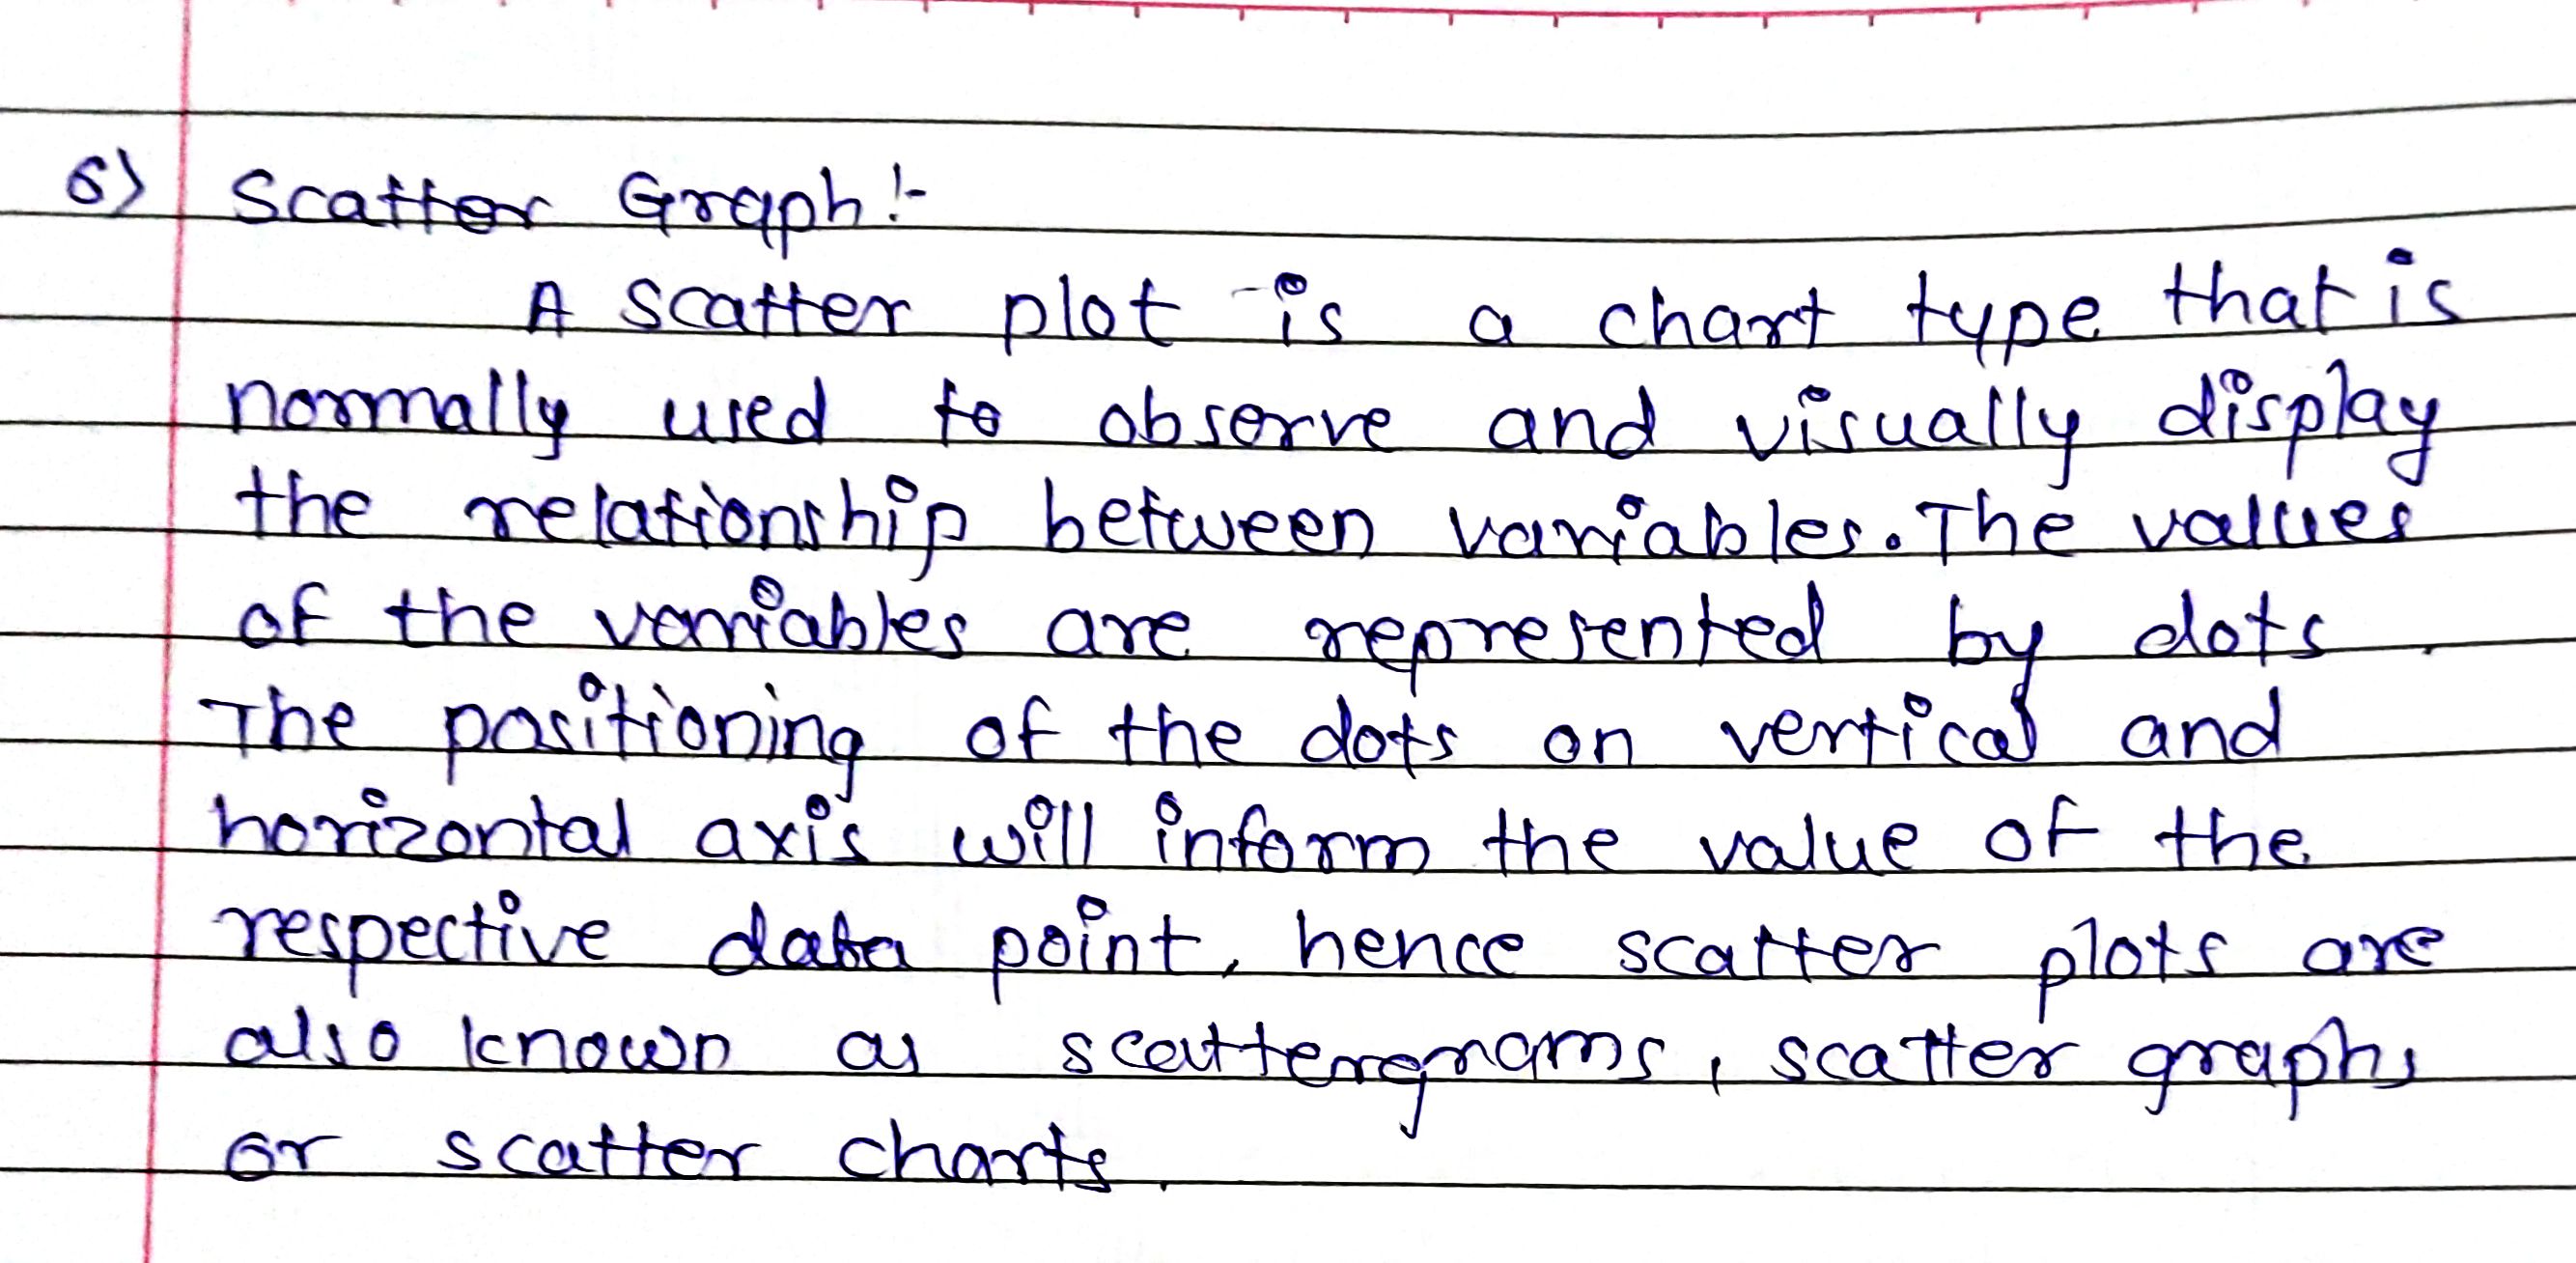 6) Scatter Graph :-
A scatter plot is a chart type that is
normally used to observe and visually display
the relationship between variables. The values
of the variables are represented by dots.
The positioning of the dots on vertical and
horizontal axis will inform the value of the
respective data point, hence scatter plots are
also known as scattergrams, scatter graphs
or scatter charts.